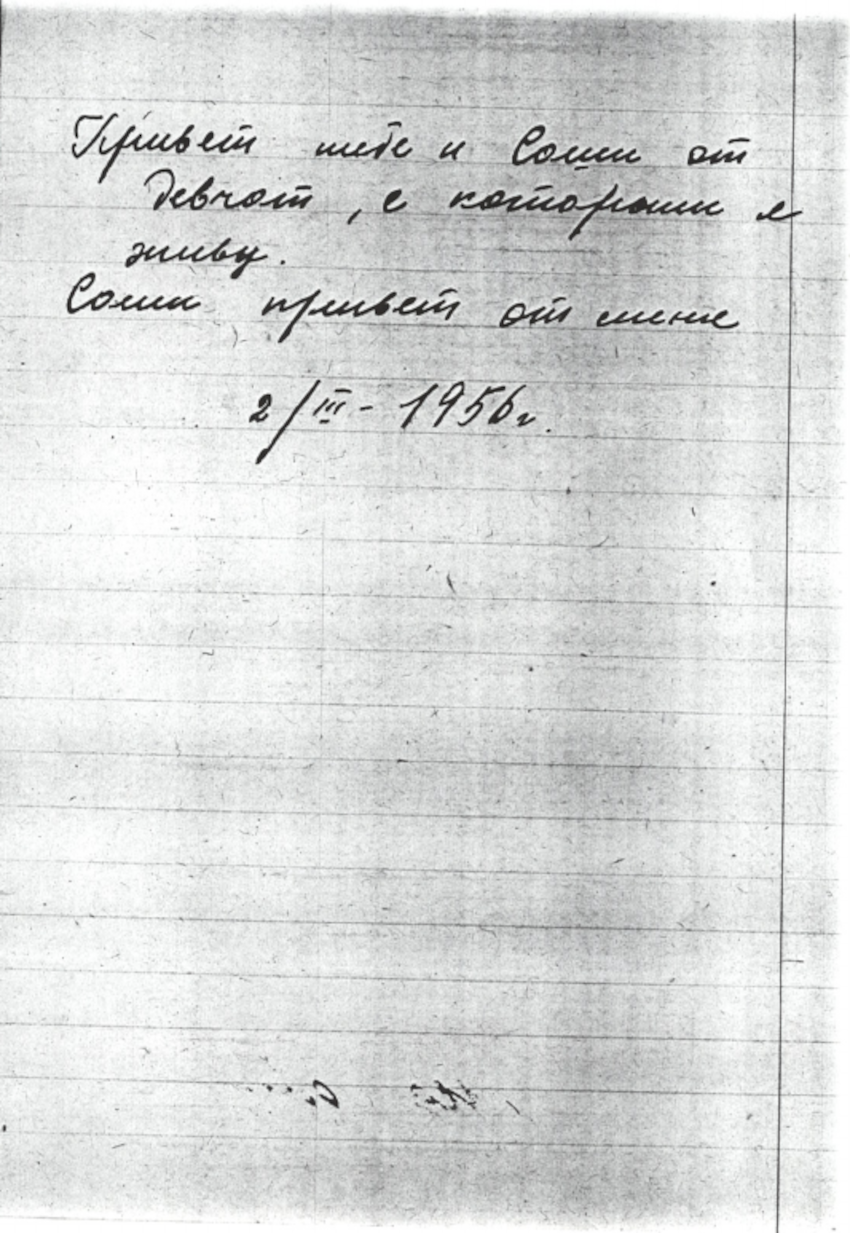 Привет тебе и Соми от
девчат, с которыми я
живу.
Соми привет от меня
2/III - 1956г.